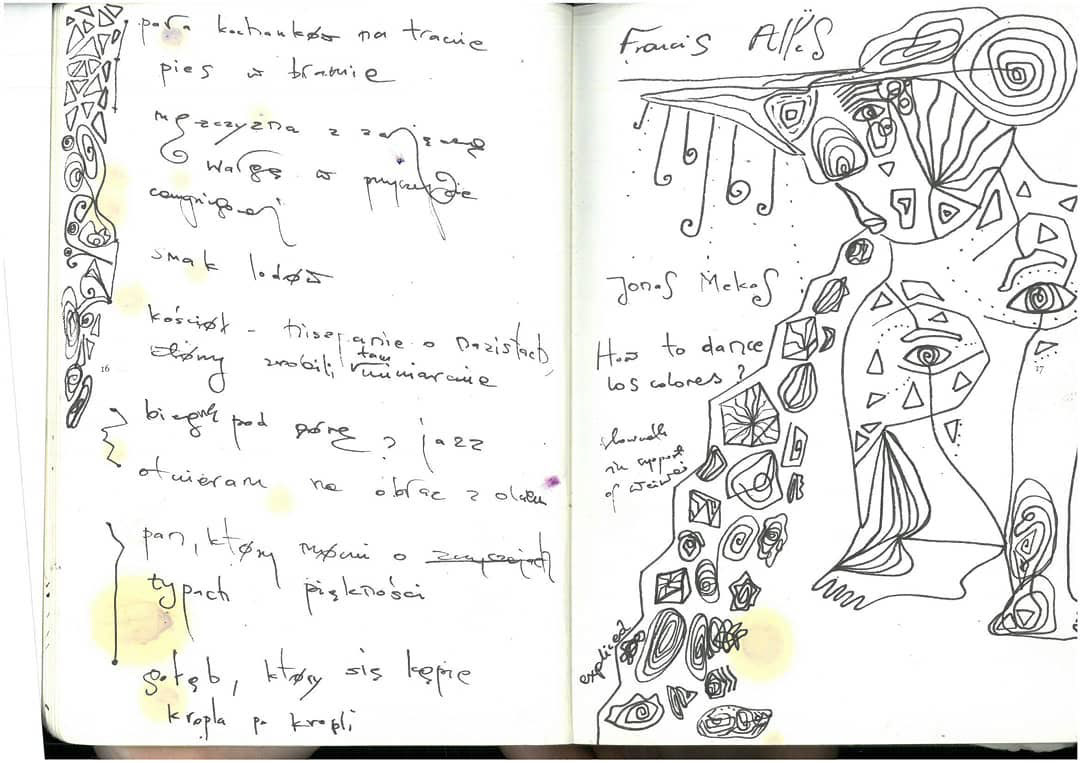 para kochanków na trawie
pies w bramie
mężczyzna z zajęczą
wargą w przyczepie
campingowej
smak lodów
kościół – hiszpanie o nazistach,
zrobili tam
16
biegnę pod górę ? jazz
otwieram na obraz z
pan, który mówi o zwyczajach
typach piękności
gołęb, który się kąpie
kropla po kropli
Francis Alÿs
Jonas Mekas
How to dance
los colores?
in support
of weiwei
explica
17